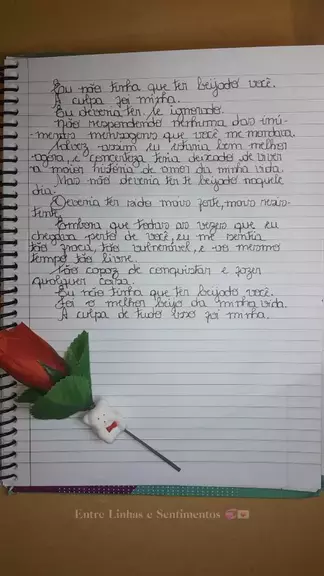 Eu não tinha que ter beijado você.
A culpa foi minha.
Eu deveria ter te ignorado.
Não respondendo nenhuma das inú-
meras mensagens que você me mandava.
Talvez assim eu estaria bem melhor
agora, e concerteza teria deixado de viver
a maior história de amor da minha vida.
Mas não deveria ter te beijado naquele
dia.
Deveria ter sido mais forte, mais resis-
tente.
Embora que todas as vezes que eu
chegava perto de você, eu me sentia
tão fraca, tão vulnerável, e ao mesmo
tempo tão livre.
Tão capaz de conquistar e fazer
qualquer coisa.
Eu não tinha que ter beijado você.
Foi o melhor beijo da minha vida.
A culpa de tudo isso foi minha.
Entre Linhas e Sentimentos